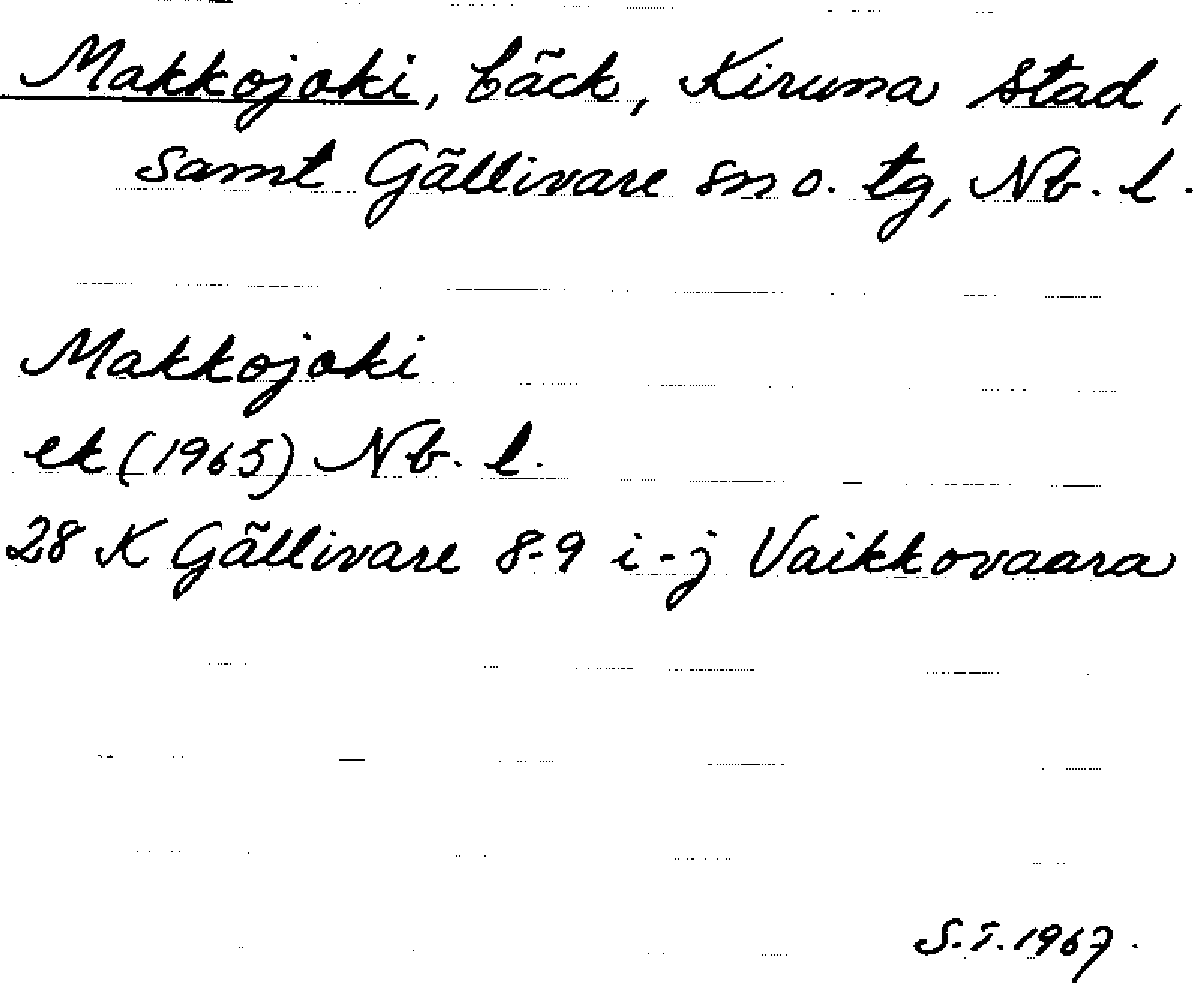 Makkojoki, bäck, Kiruna stad,
samt Gällivare sn o. tg, Nb. l.
Makkojoki
ek (1965) Nb. l.
28 K Gällivare 8-9 i-j Vaikkovaara
S.I. 1967.